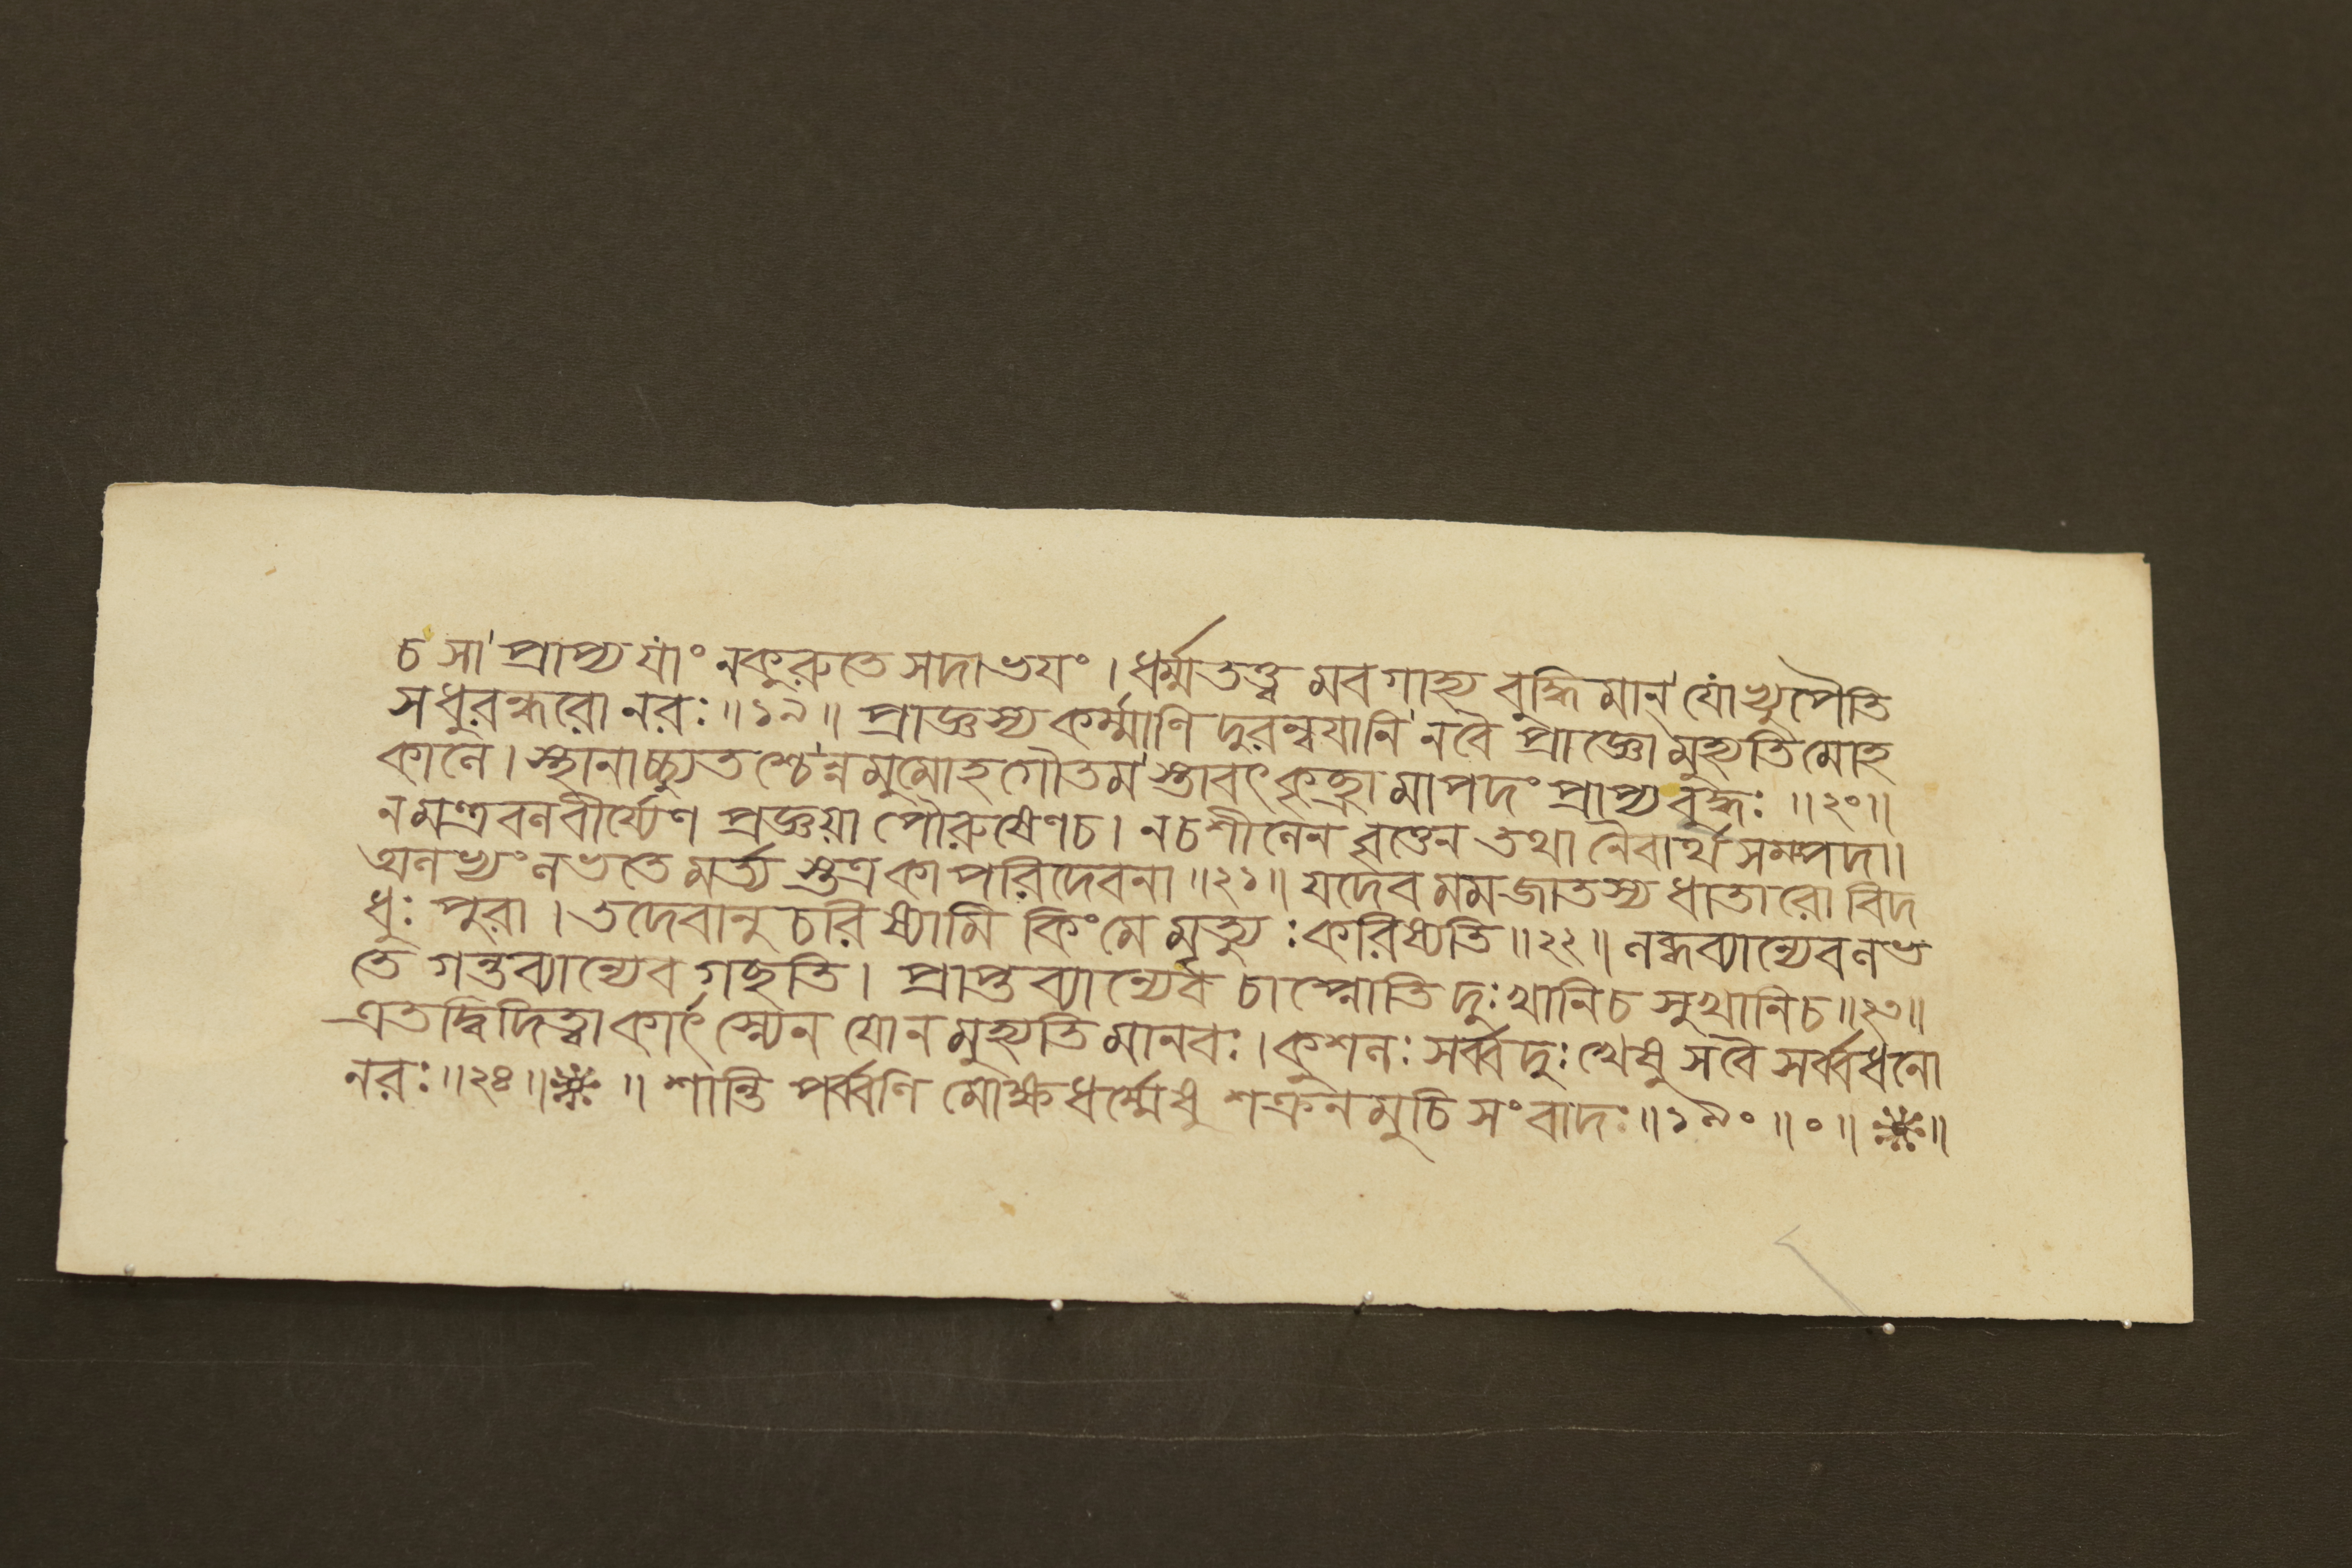 চ সা প্রাপ্য যাং ন কুরুতে সদা ভযং । ধর্ম্মতত্ত্বমবগাহ্য বুদ্ধিমান্ যোঽভ্যুপৈতি
স ধুরন্ধরো নরঃ ॥ ১৯ ॥ প্রাজ্ঞস্য কর্ম্মাণি দুরন্বযানি ন বৈ প্রাজ্ঞো মুহ্যতি মোহ
কালে । স্থানাচ্চ্যুতশ্চেন্ন মুমোহ গৌতমস্তাবৎ কৃচ্ছ্রামাপদং প্রাপ্য বৃদ্ধঃ ॥ ২০ ॥
ন মন্ত্রবলবীর্য্যেণ প্রজ্ঞয়া পৌরুষেণ চ । ন চ শীলেন বৃত্তেন তথা নৈবার্থসম্পদা ।
অলভ্যং লভতে মর্ত্যস্তত্র কা পরিদেবনা ॥ ২১ ॥ যদেব মম জাতস্য ধাতারো বিদ
ধুঃ পুরা । তদেবানুচরিষ্যামি কিং মে মৃত্যুঃ করিষ্যতি ॥ ২২ ॥ লব্ধব্যান্যেব লভ
তে গন্তব্যান্যেব গছতি । প্রাপ্তব্যান্যেব চাপ্নোতি দুঃখানি চ সুখানি চ ॥ ২৩ ॥
এতদ্বিদিত্বা কার্ৎস্ন্যেন যো ন মুহ্যতি মানবঃ । কুশলঃ সর্ব্বদুঃখেষু স বৈ সর্ব্বধনো
নরঃ ॥ ২৪ ॥ ॥ শান্তিপর্ব্বণি মোক্ষধর্ম্মেষু শক্রনমুচিসংবাদঃ ॥ ১৯০ ॥ ০ ॥ ॥